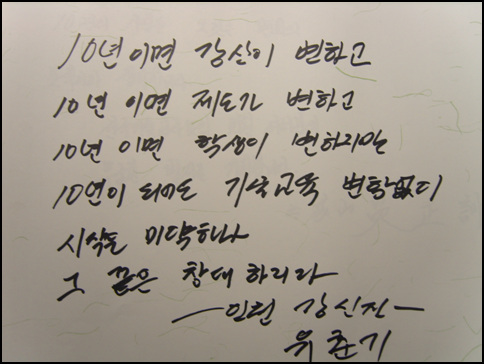 10년 이면 강산이 변하고
10년 이면 제도가 변하고
10년 이면 학생이 변하지만
10년이 되어도 기술교육 변함없이
시작은 미약하나
그 끝은 창대 하리라
- 인천 강신진 -
유춘기